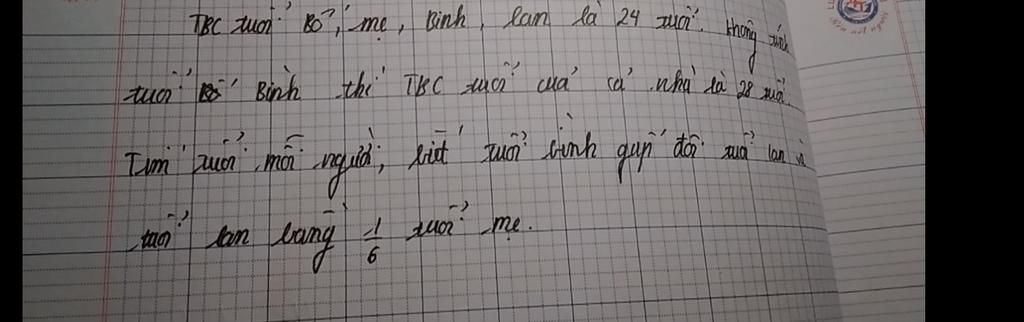 TBC tuổi Bố, mẹ, Bình, lan là 24 tuổi. không tính
tuổi Bình thì TBC tuổi của cả nhà là 28 tuổi.
Tìm tuổi mỗi người, biết tuổi bình gấp đôi tuổi lan và
tuổi lan bằng 1/6 tuổi mẹ.